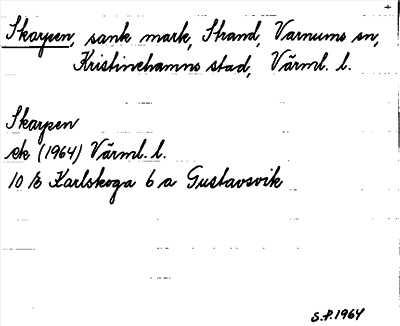 Skarpen, sank mark, Strand, Varnums sn,
Kristinehamns stad, Värml. l.
Skarpen
ek (1964) Värml. l.
10 E Karlskoga 6 a Gustavsvik
S.P. 1964